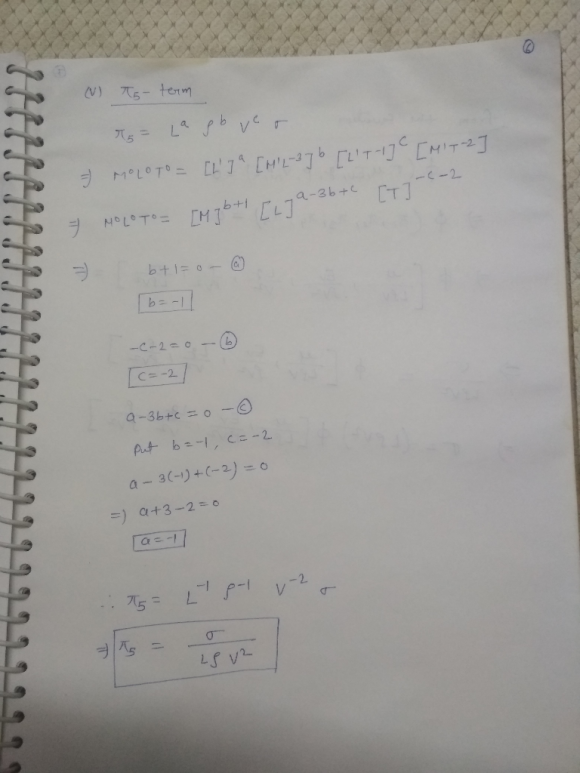 6
(V) π₅- term
π₅ = Lᵃ ρᵇ Vᶜ σ
⇒ M⁰L⁰T⁰ = [L¹]ᵃ [M¹L⁻³]ᵇ [L¹T⁻¹]ᶜ [M¹T⁻²]
⇒ M⁰L⁰T⁰ = [M]ᵇ⁺¹ [L]ᵃ⁻³ᵇ⁺ᶜ [T]⁻ᶜ⁻²
⇒ b+1=0 — ⓐ
b=-1
-c-2=0 — ⓑ
c=-2
a-3b+c=0 — ⓒ
Put b=-1, c=-2
a-3(-1)+(-2)=0
⇒ a+3-2=0
a=-1
∴ π₅ = L⁻¹ ρ⁻¹ V⁻² σ
⇒ π₅ = σ / LρV²